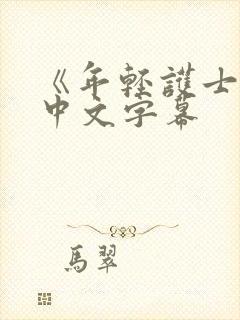 《年輕護士
中文字幕
馬翠